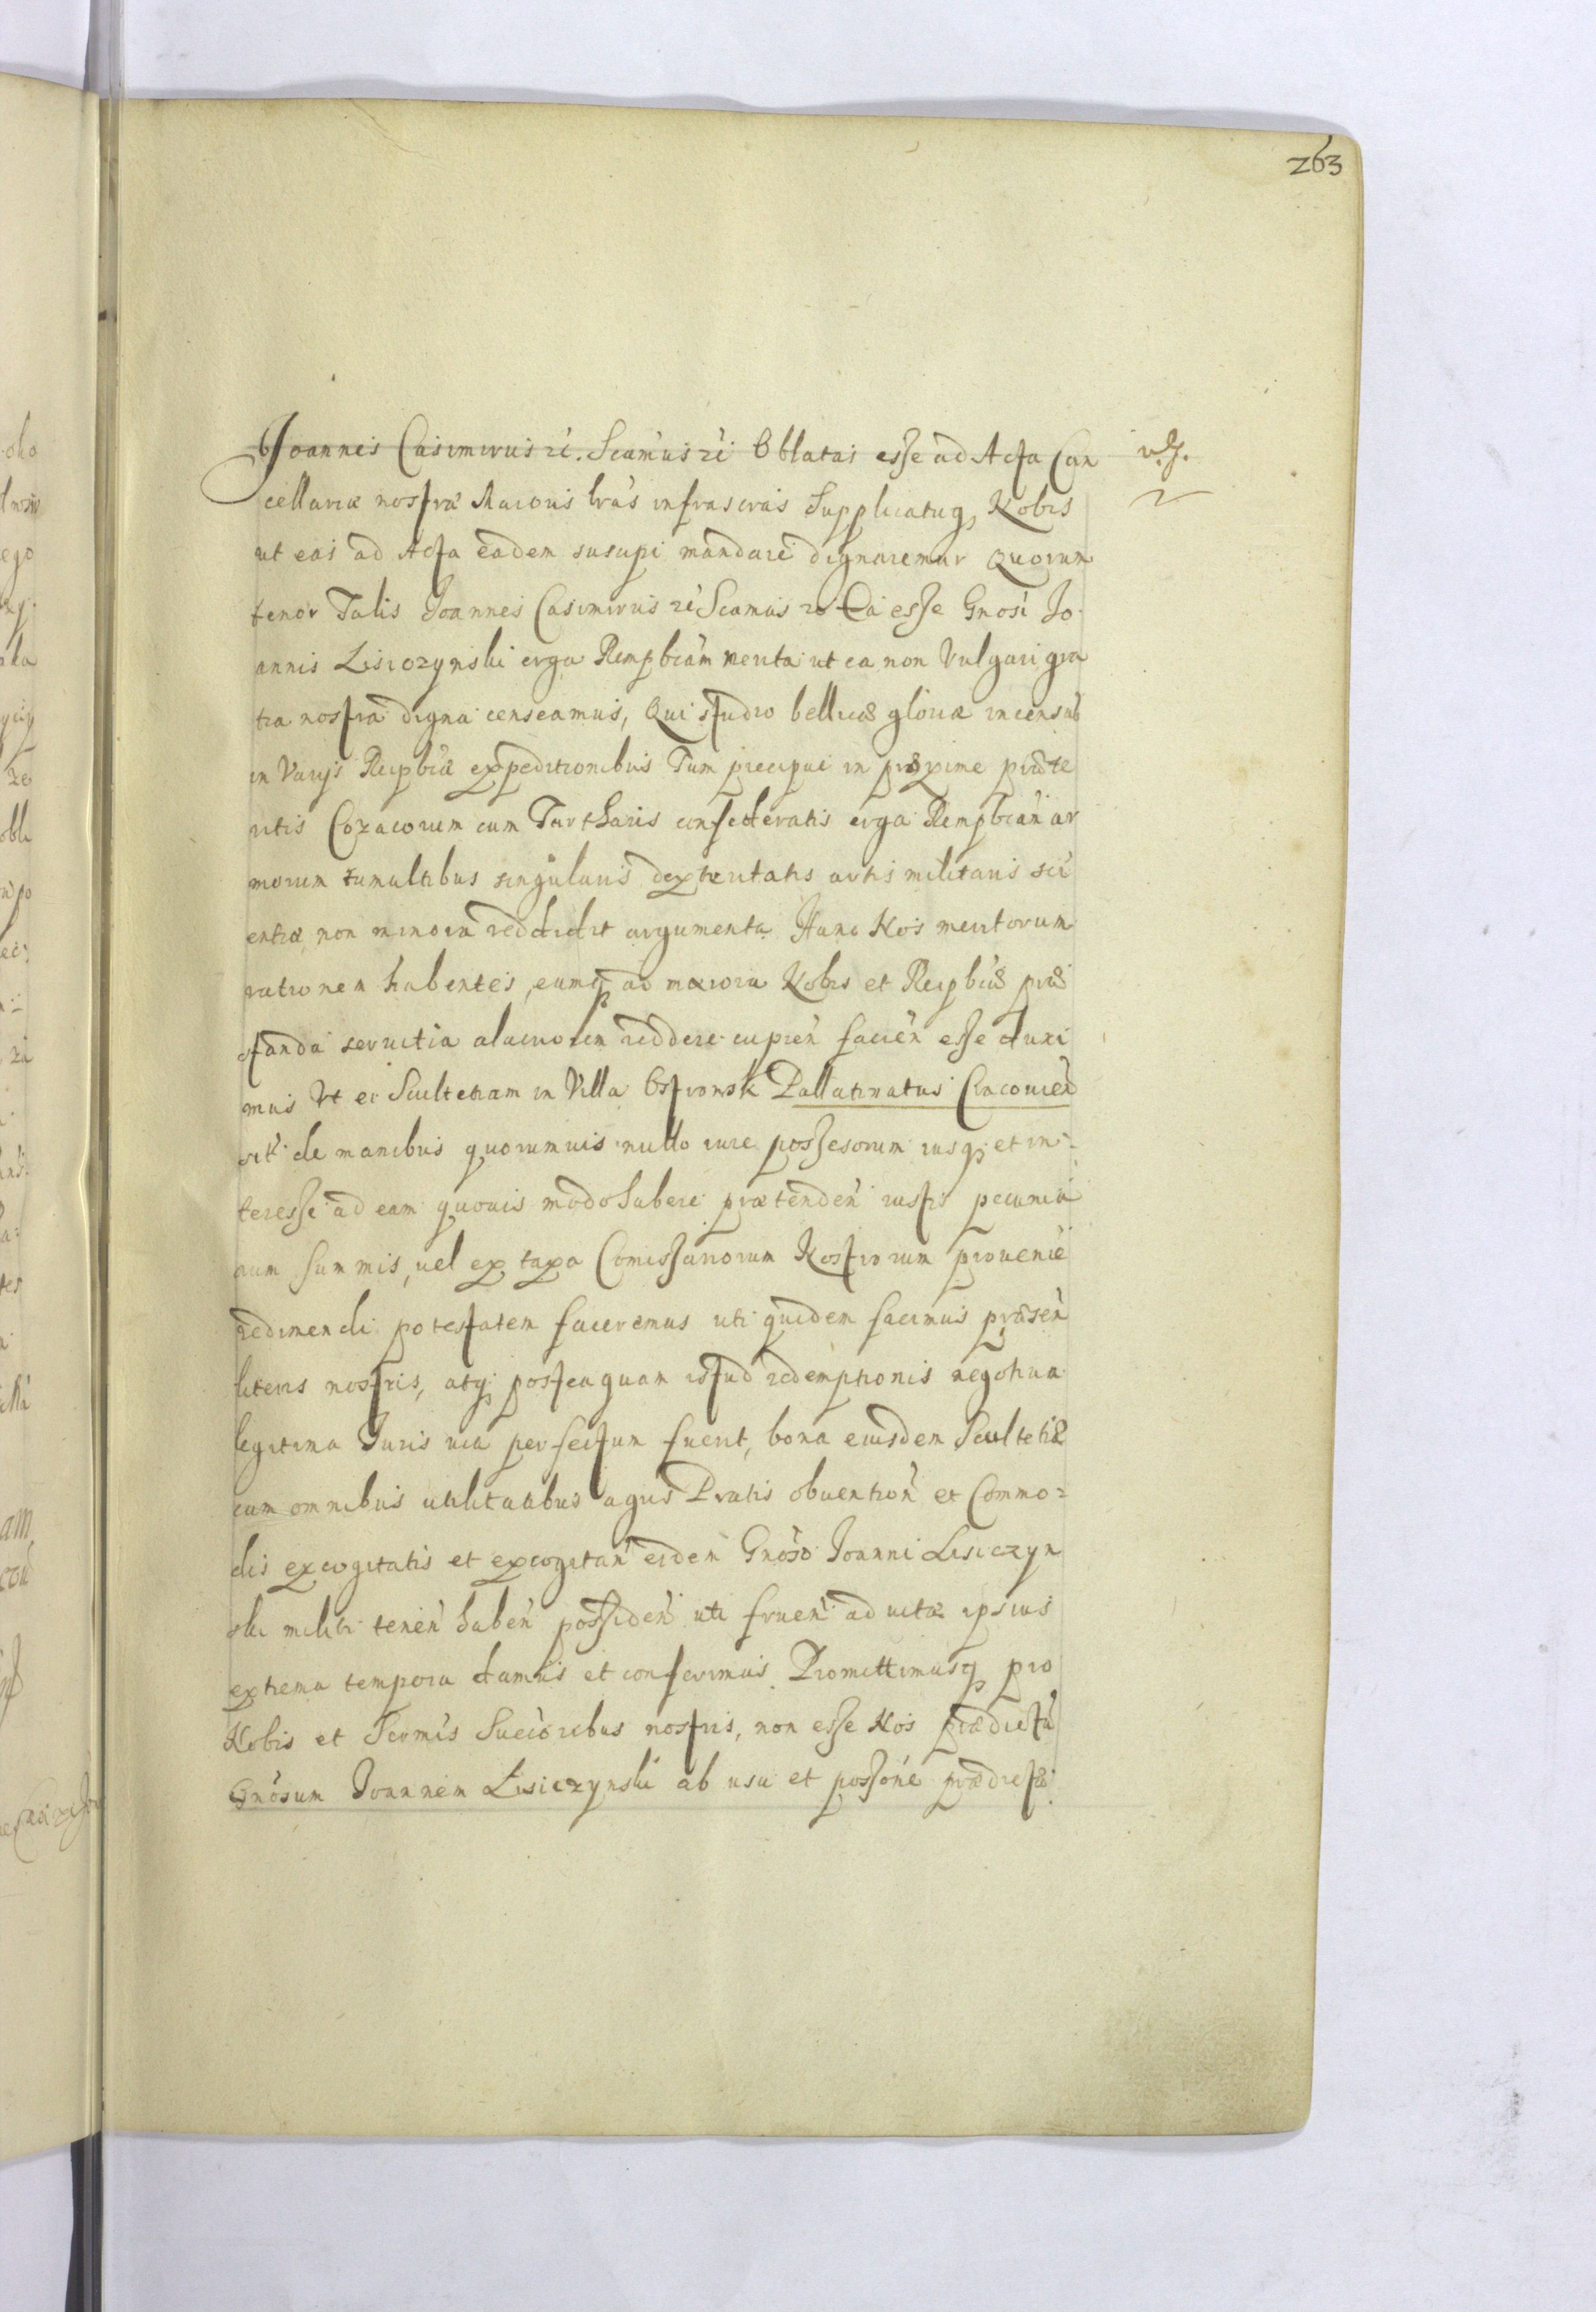 263
Joannes Casimirus rc. Scamus rc Oblatas esse ad Acta Can
v.s.
cellariæ nostræ Maioris lras infrascras Supplicatuq, Nobis
ut eas ad Acta eadem suscipi mandare dignaremur Quorum
tenor Talis Joannes Casimirus rc Scamus rc Ea esse Gnosi Jo
annis Lisiczynski erga Rempbcam merita ut ea non Vulgari gra
tia nostra digna censeamus, Qui studio bellicæ gloriæ incensus
in Varijs Reipbcæ expeditionibus Tum precipue in proxime præte
ritis Cozacorum cum Tartharis confederatis erga Rempbcam ar
morum tumultibus singularis dexteritatis artis militaris sci
entiæ non minora reddidit argumenta Hanc Nos meritorum
rationem habentes, eumq ad maiora Nobis et Reipbcæ præ
standa servitia alacriorem reddere cupien facien esse duxi
mus Vt ei Scultetiam in Villa Ostrowsk Pallatinatus Cracovien
sit de manibus quorumvis nullo iure possesorum iusq et in
teresse ad eam quovis modo habere prætenden iustis pecunia
rum summis, vel ex taxa Comissariorum Nostrorum provenie
redimendi potestatem faceremus uti quidem facimus præsen
literis nostris, atq posteaquam istud redemptionis negotium
legitima Juris via perfectum fuerit, bona eiusdem Scultetiæ
cum omnibus utilitatibus agris Pratis obvention et Commo=
dis excogitatis et excogitan eidem Gnoso Joanni Lisiczyn
ski militi tenen haben possiden uti fruen ad vitæ ipsius
extrema tempora damus et conferimus. Promittimusq pro
Nobis et Sermis Succoribus nostris, non esse Nos prædictu
Gnosum Joannem Lisiczynski ab usu et possone prædictæ